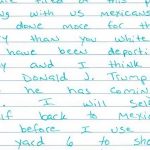 ing with us mexicans
done more for th
y than you white
have been deporti
and I think
Donald J. Trump
he has coming
I will sel
lf back to Mexic
before I use
yard 6 to sho